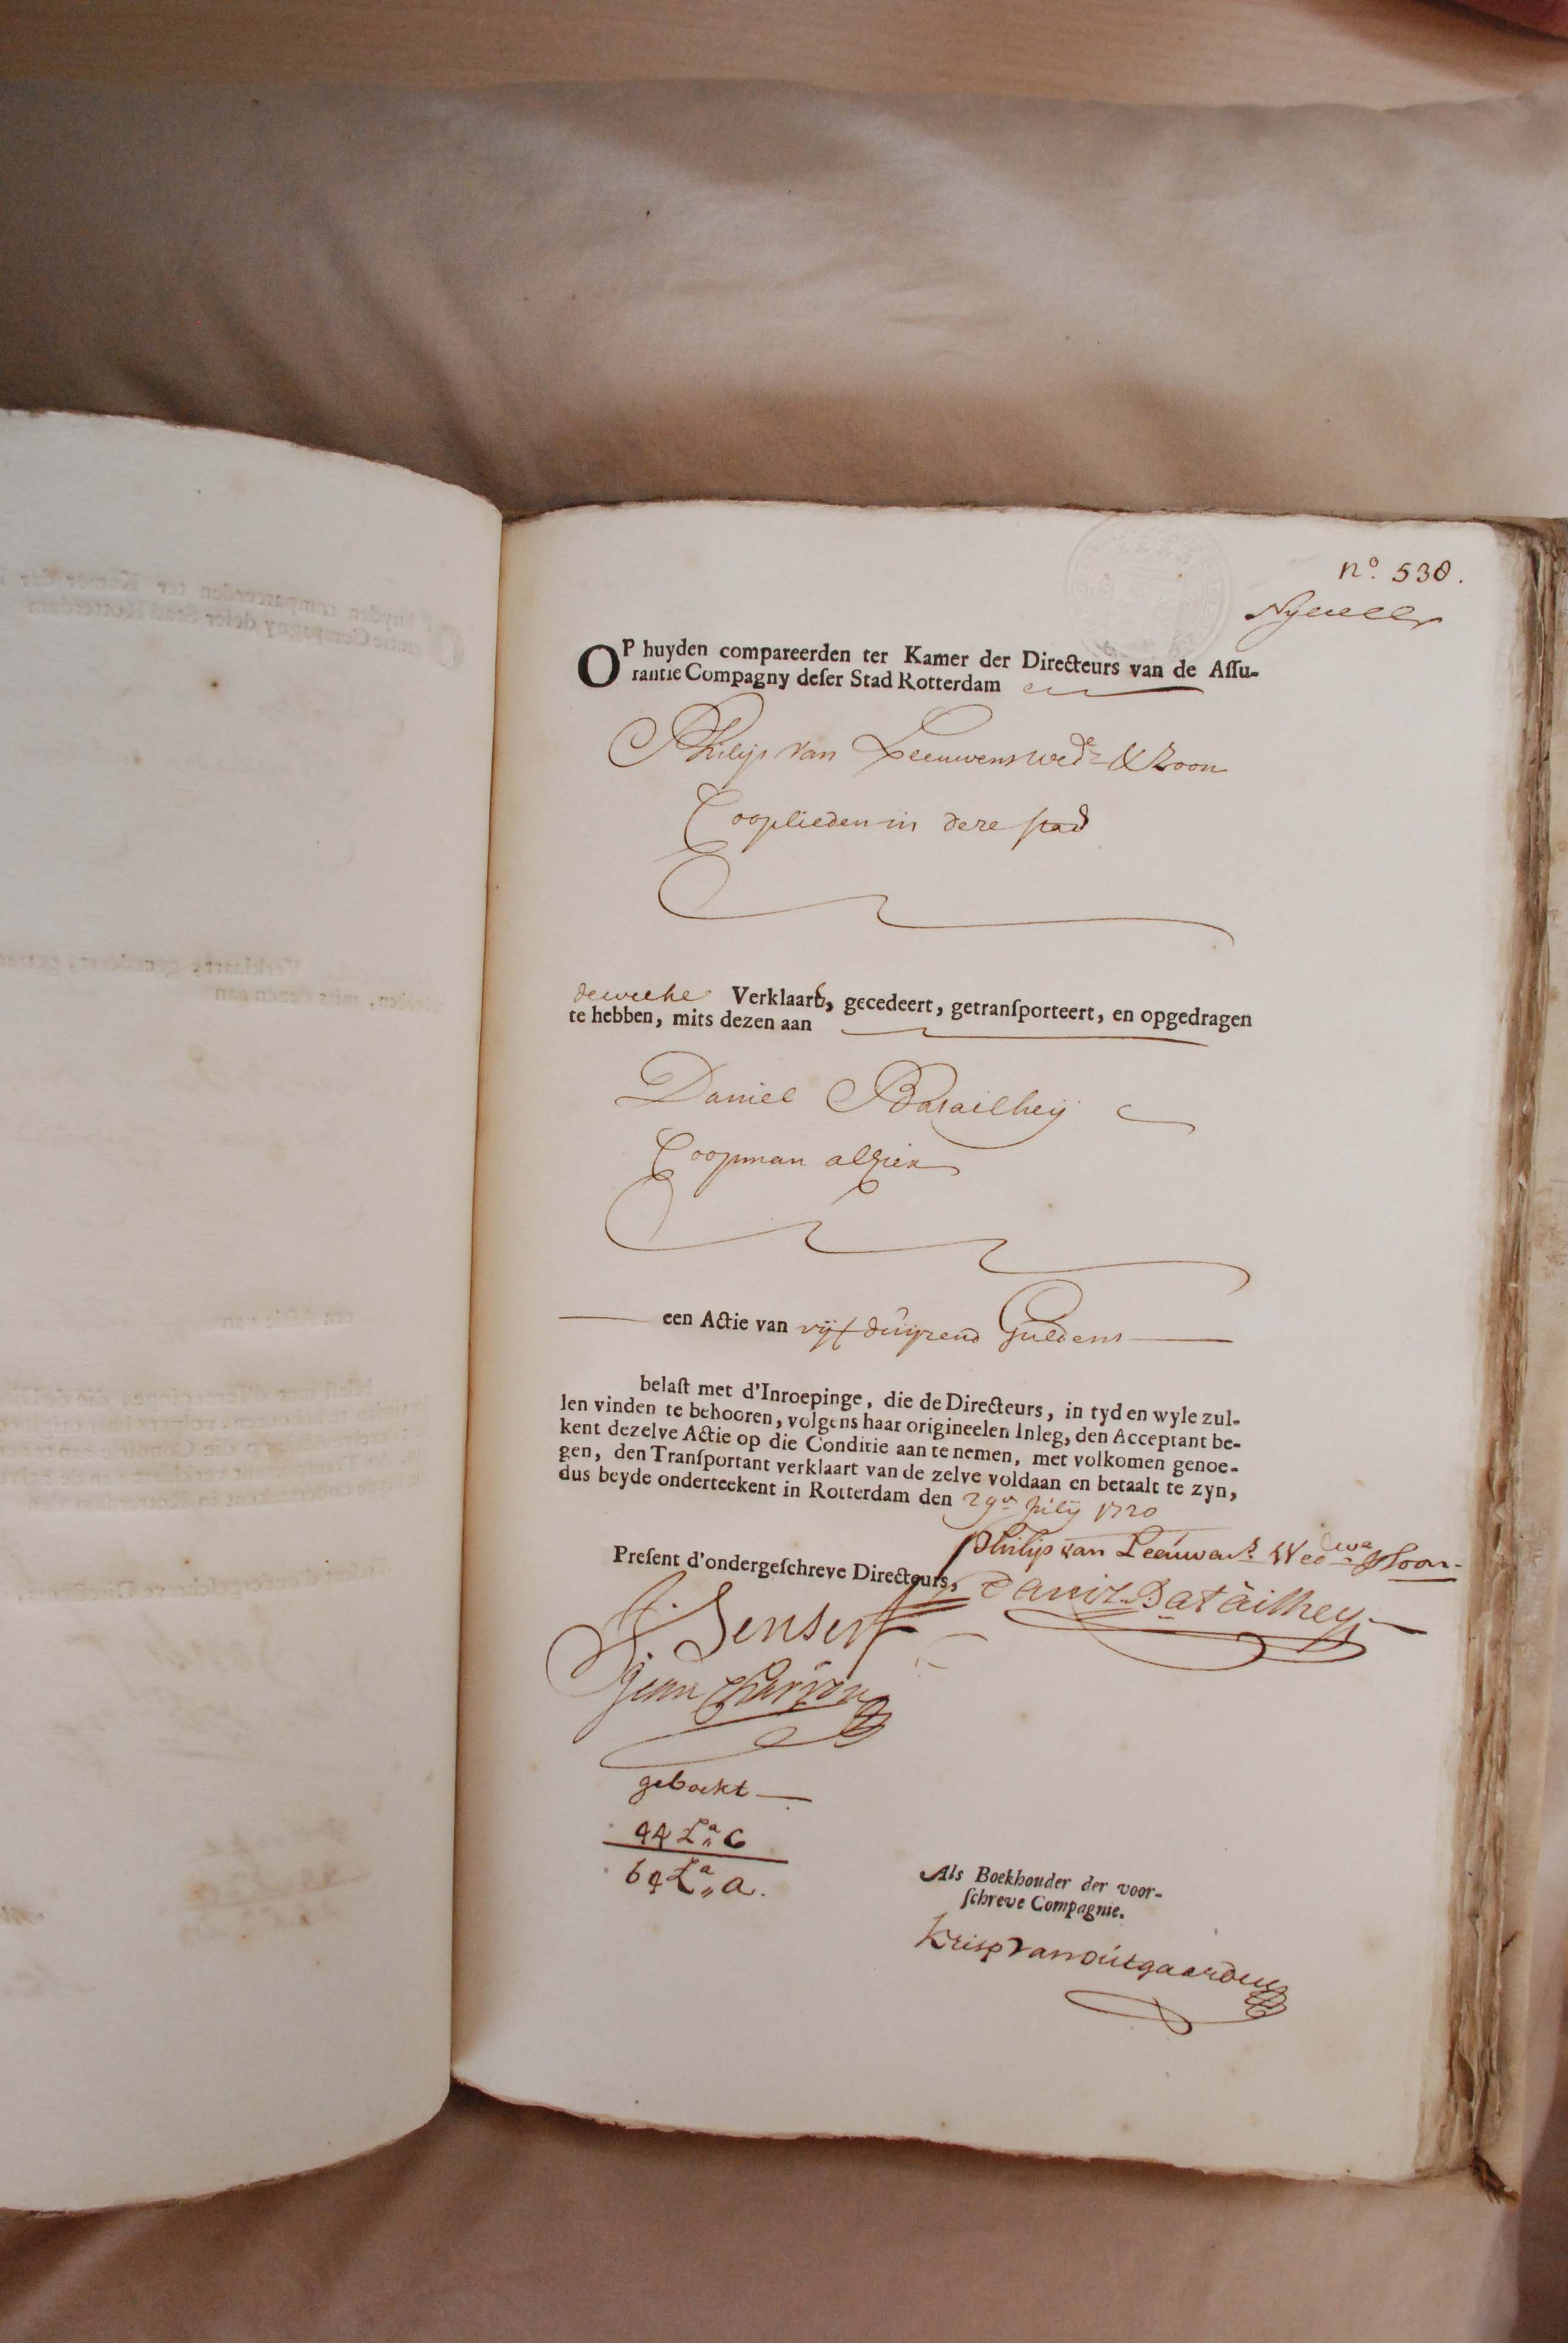 nº. 538.
OP huyden compareerden ter Kamer der Directeurs van de Aſſu-
rantie Compagny deſer Stad Rotterdam
Philip van Leeuwens wedᵉ & Zoon
Cooplieden in deze stad
dewelke Verklaard, gecedeert, getranſporteert, en opgedragen
te hebben, mits dezen aan
Daniel Batailheij
Coopman alhier
een Actie van vijf duijzend Guldens
belaſt met d'Inroepinge, die de Directeurs, in tyd en wyle zul-
len vinden te behooren, volgens haar origineelen Inleg, den Acceptant be-
kent dezelve Actie op die Conditie aan te nemen, met volkomen genoe-
gen, den Tranſportant verklaart van de zelve voldaan en betaalt te zyn,
dus beyde onderteekent in Rotterdam den 29ᵉⁿ Julij 1720
Philip van Leeuwens Wedwe & Soon
Preſent d'ondergeſchreve Directeurs,
Daniel Batailhey
J. Senserf
Jean
geboekt
44 Lª C
64 Lª a.
Als Boekhouder der voor-
ſchreve Compagnie.
Krisp van outgaarden